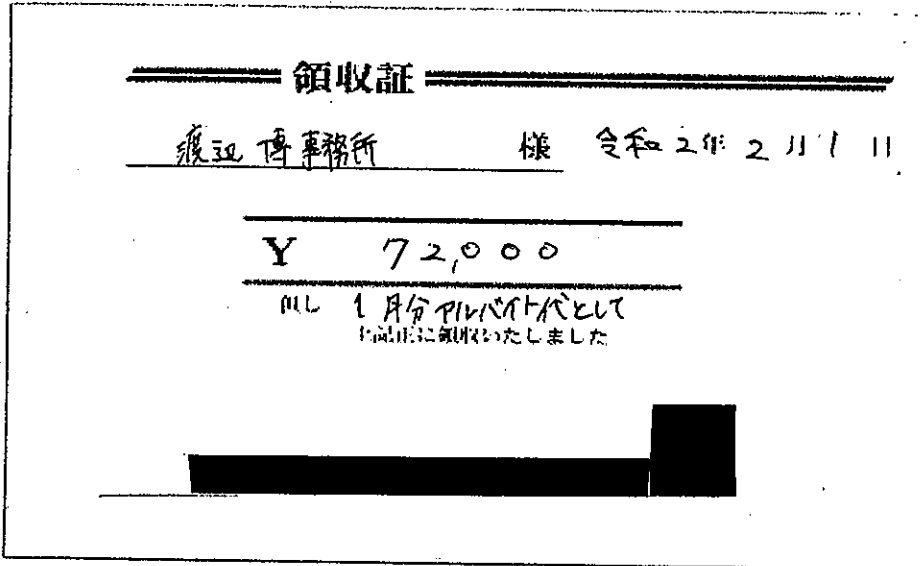 領収証
渡辺博事務所 様 令和2年2月1日
¥ 72,000
但し 1月分アルバイト代として
上記正に領収いたしました